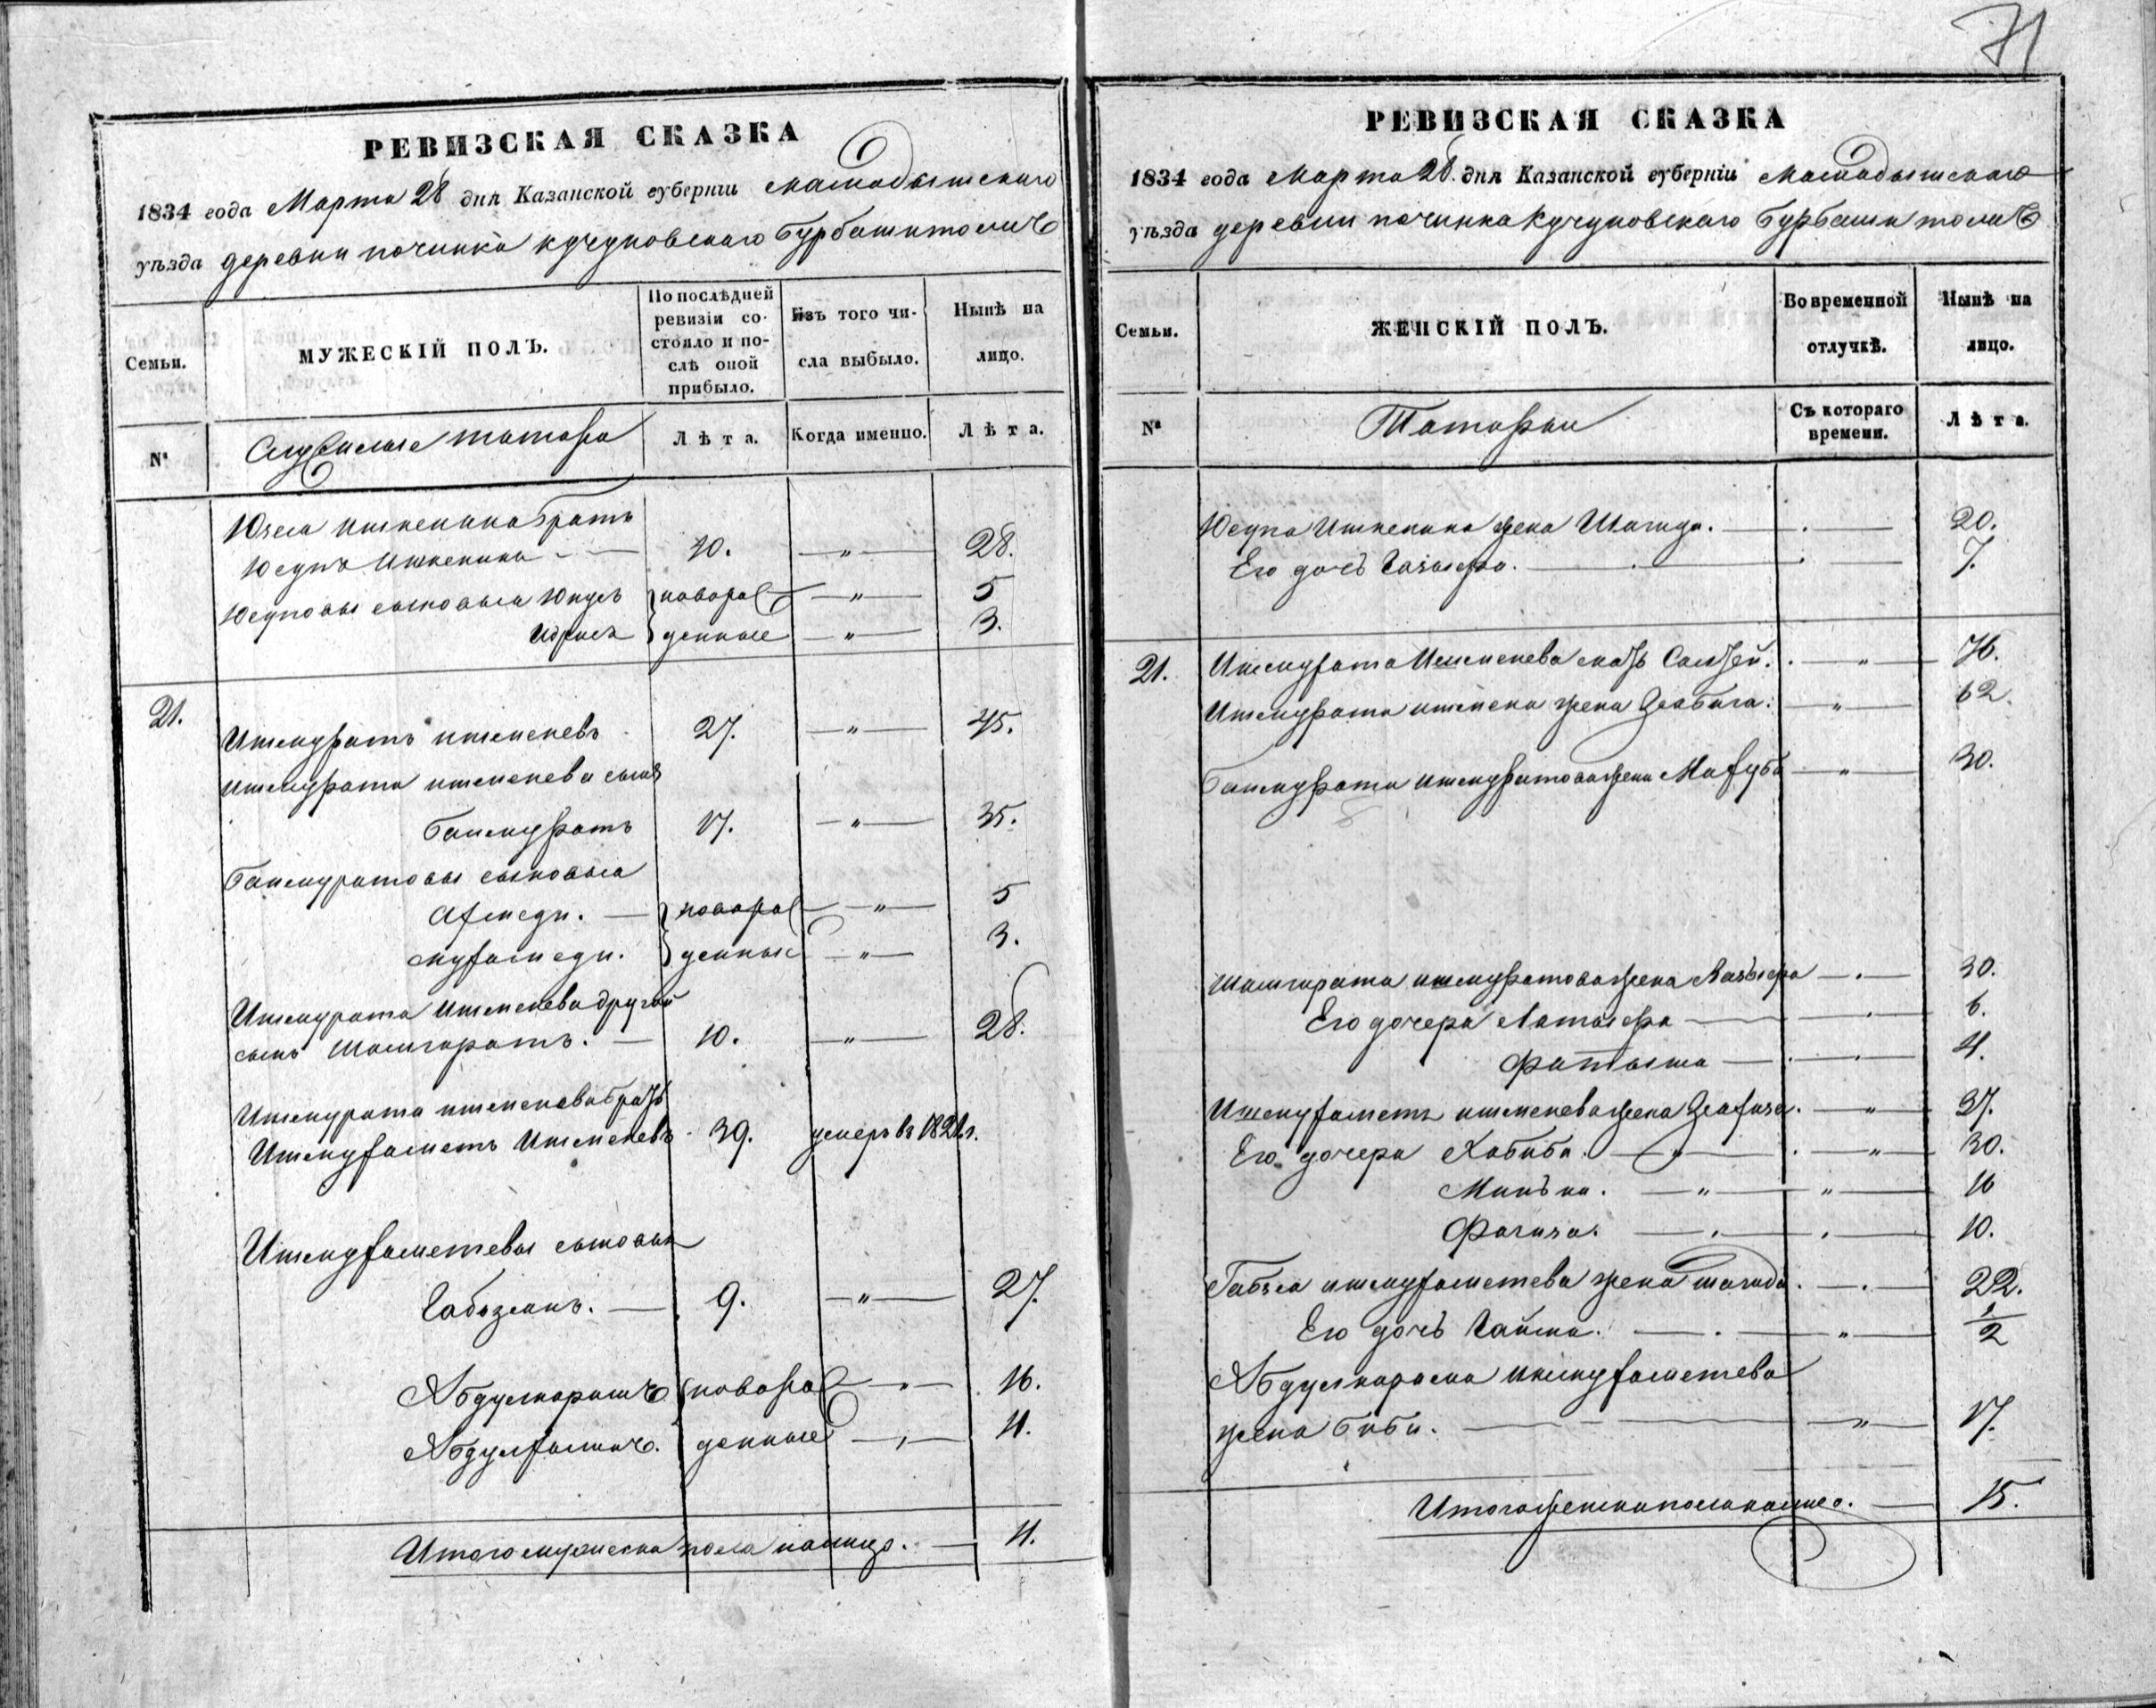 71
РЕВИЗСКАЯ СКАЗКА
1834 года Марта 28 дня Казанской губерніи Мамадышскаго
уѣзда деревни починка Кучуковскаго Бурбаши тожъ
Семьи.
МУЖЕСКІЙ ПОЛЪ.
По послѣдней ревизіи состояло и послѣ оной прибыло.
Изъ того числа выбыло.
Нынѣ на лицо.
№
Служилые татара
Лѣта.
Когда именно.
Лѣта.
Ишкенина братъ
Юсупъ Ишкенинъ 10. — " — 28.
Юсуповы сыновья Юнусъ новоро — " — 5
Идрисъ жденные — " — 3.
21.
Ишмуратъ ишменевъ 27. — " — 45.
Ишмурата ишменева сынъ
Баймуратъ 17. — " — 35.
Баймуратовы сыновья
Ахмеди. новоро — " — 5
Мухамеди. жденные — " — 3.
Ишмурата Ишменева другой
сынъ Шамгаратъ. — 10. — " — 28.
Ишмурата ишменева братъ
Ишмухаметъ Ишменевъ 39. умеръ въ г.
Ишмухаметевы сыновья
9. — " — 27.
Абдулкаримъ новоро — " — 16.
жденные — " — 11.
Итого мужеска пола налицо. — 11.
РЕВИЗСКАЯ СКАЗКА
1834 года Марта 28. дня Казанской губерніи Мамадышскаго
уѣзда деревни починка Кучуковскаго Бурбаши тожъ
Семьи.
ЖЕНСКІЙ ПОЛЪ.
Во временной отлучкѣ.
Нынѣ на лицо.
№
Татарки
Съ котораго времени.
Лѣта.
Юсупа Ишкенина жена Шагида. — 20.
Его дочь — 7.
21. Ишмурата Ишменева мать — " — 76.
Ишмурата ишмена жена — " — 62.
Баймурата ишмуратова жена Махуба — " — 30.
Шамгарата ишмуратова жена — 30.
Его дочери — 6.
Фатыма — 4.
Ишмухаметъ ишменева жена — " — 37.
Его дочери Хабиба. — " — 30.
— " — " — 16
Фагиза. — 10.
ишмухаметева жена Шагида. — 22.
Его дочь — " — 1/2
Абдулкарима ишмухаметева
жена Биби. — " — 17.
Итого женска пола налицо. — 15.